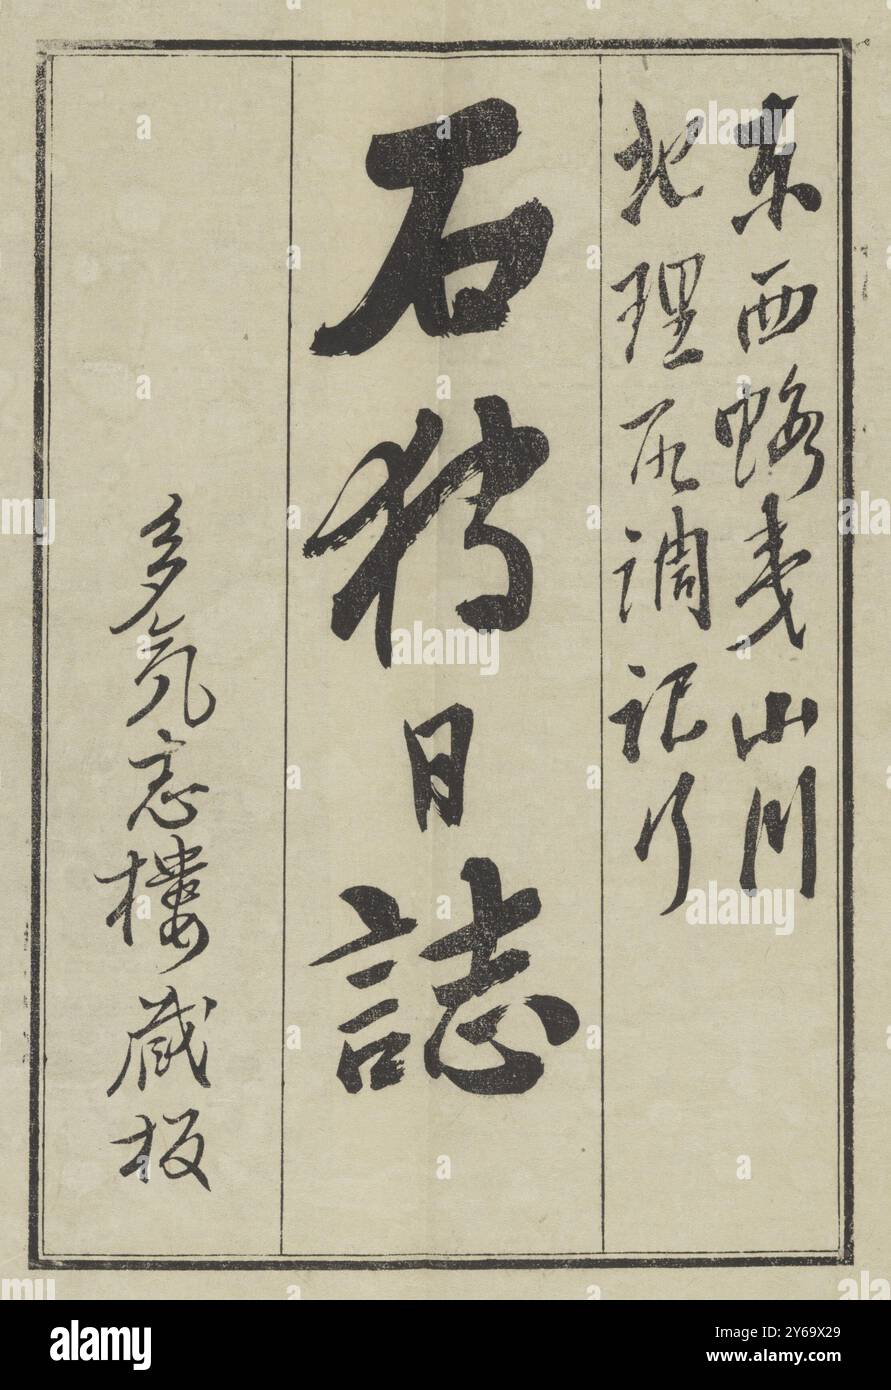 東西蝦夷山川
地理取調記行
石狩日誌
多気志楼蔵板
alamy
Image ID: 2Y69X29
www.alamy.com